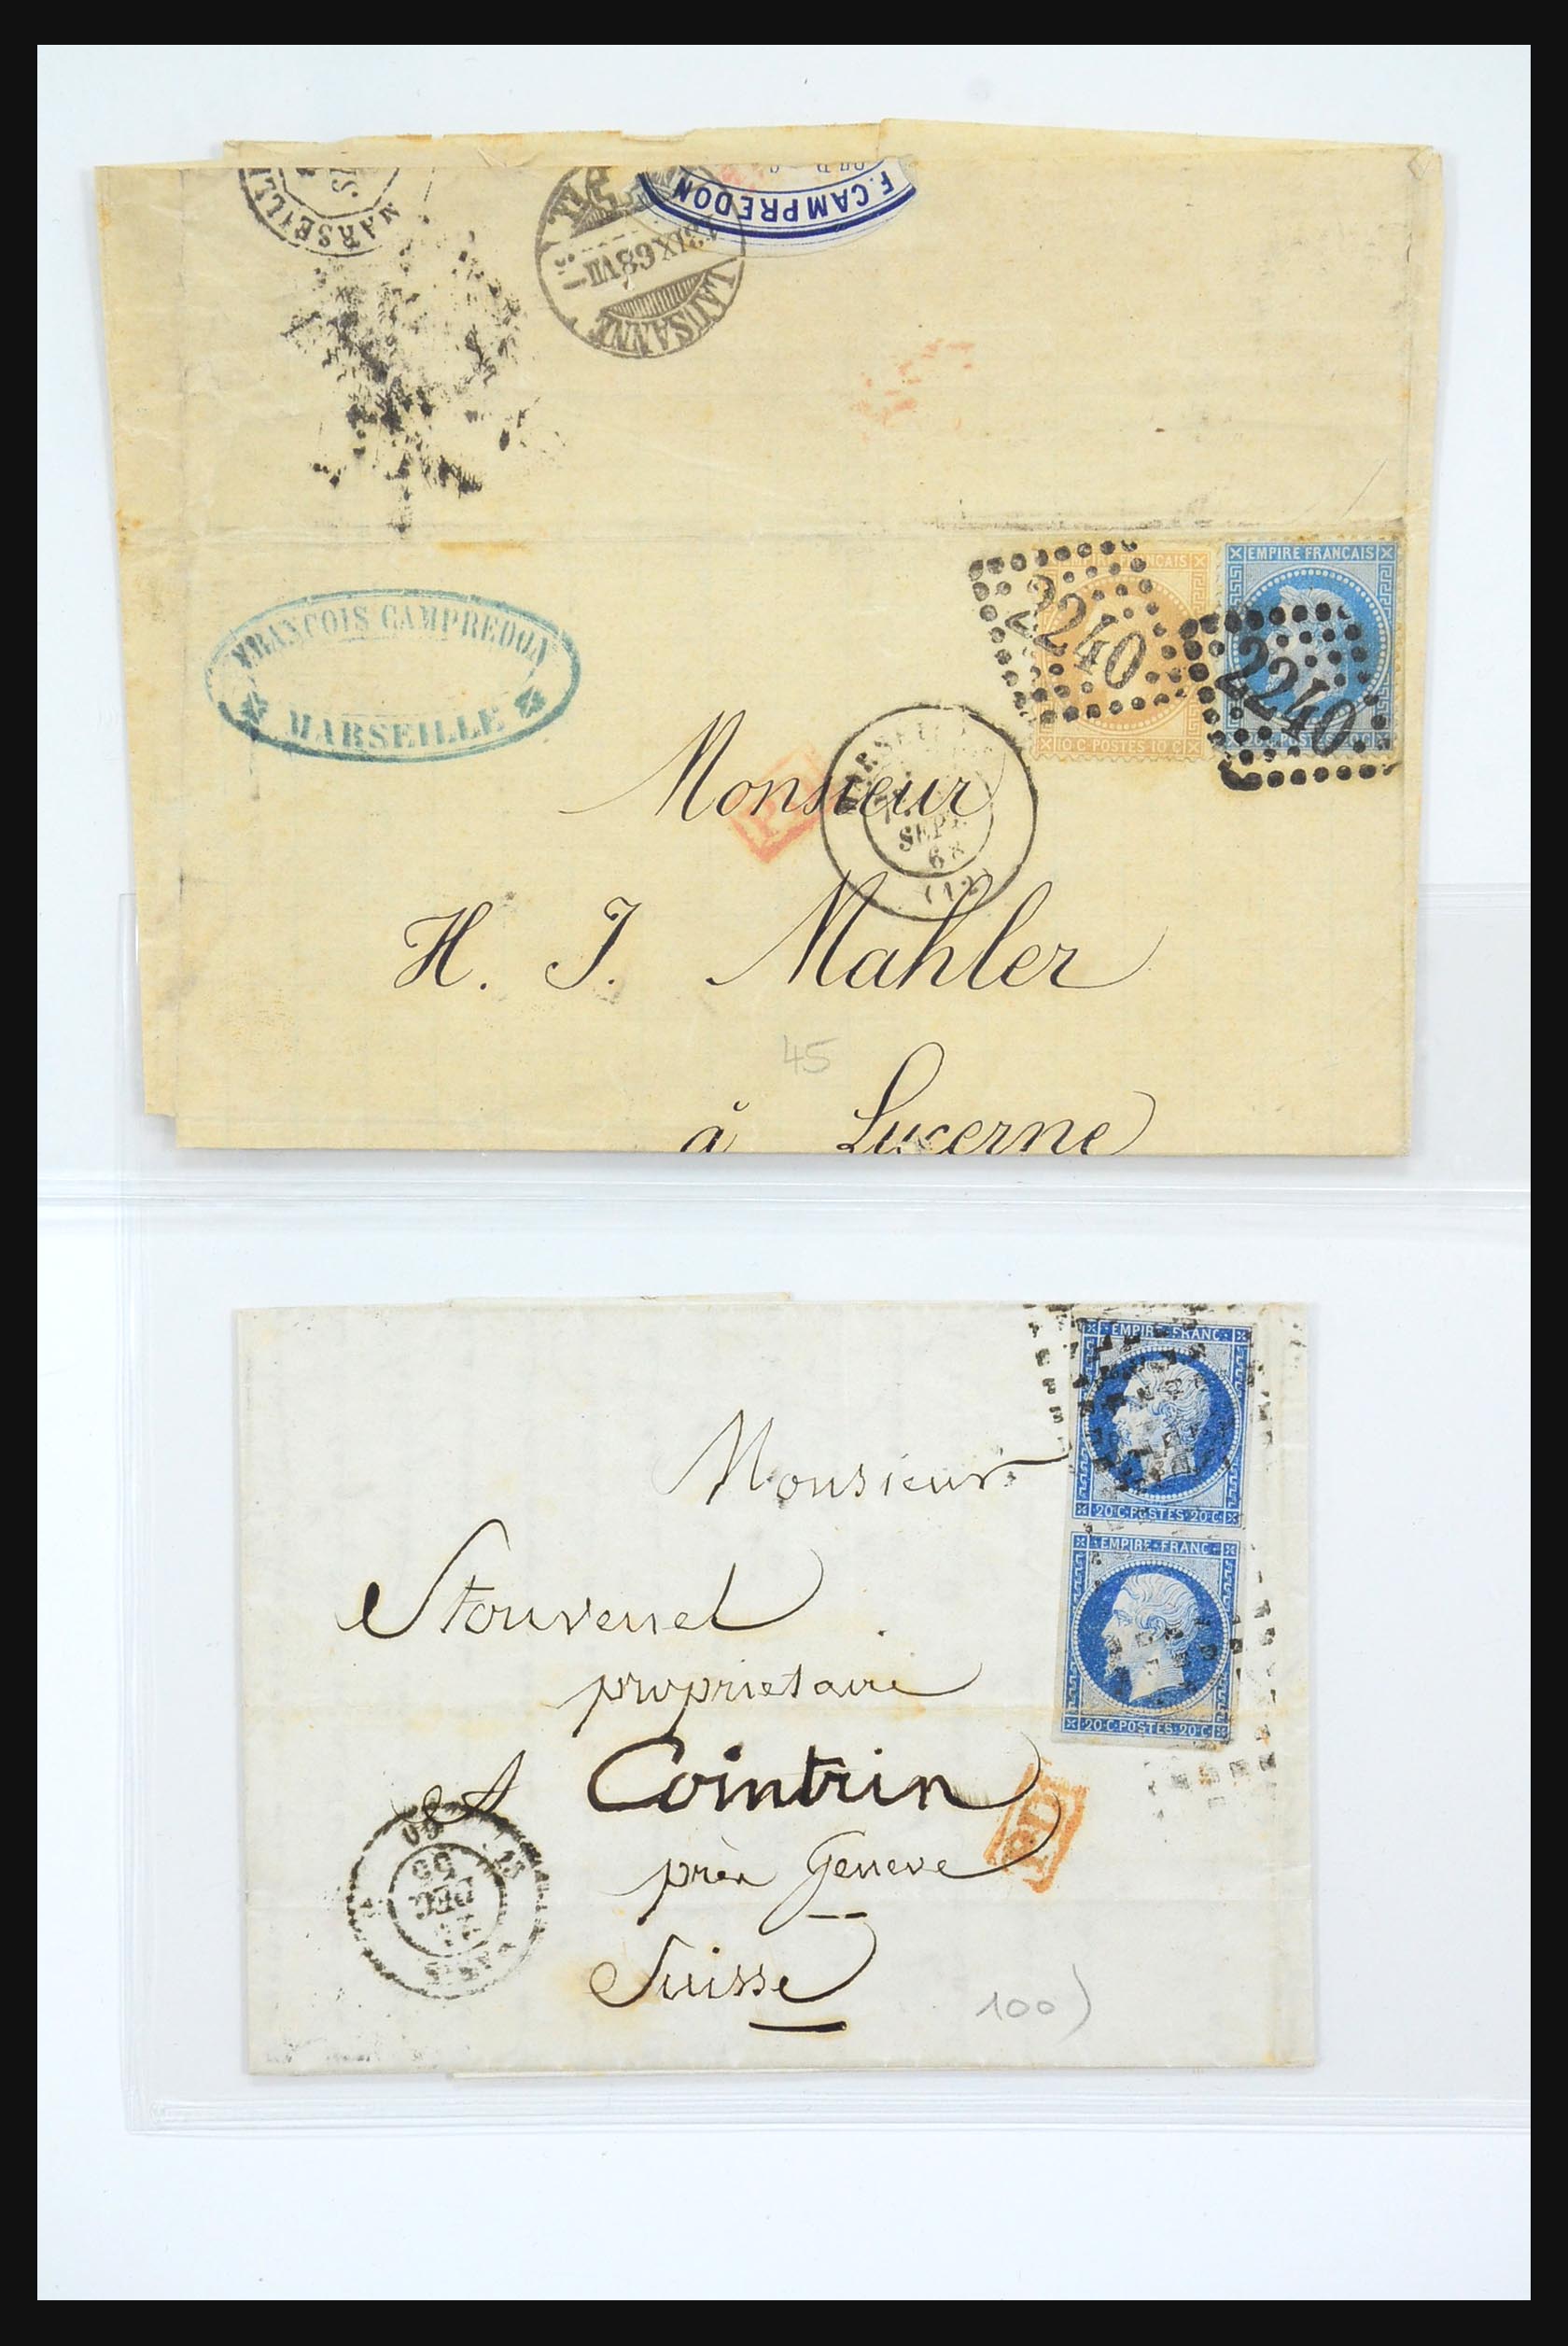 MARSEILLE
F. CAMPREDON
LAUSANNE
IX 68 VII
FRANÇOIS CAMPREDON
MARSEILLE
EMPIRE FRANCAIS
10 C · POSTES 10 C
2240
EMPIRE FRANCAIS
2240
PD
SEPT.
68
(12)
Monsieur
H. J. Mahler
45
à Lucerne
EMPIRE · FRANC ·
20 · C · POSTES · 20 · C
EMPIRE · FRANC ·
20 · C · POSTES · 20 · C
Monsieur
Stouvenel
propriétaire
A Cointrin
PD
près Geneve
Suisse
DEC
100)